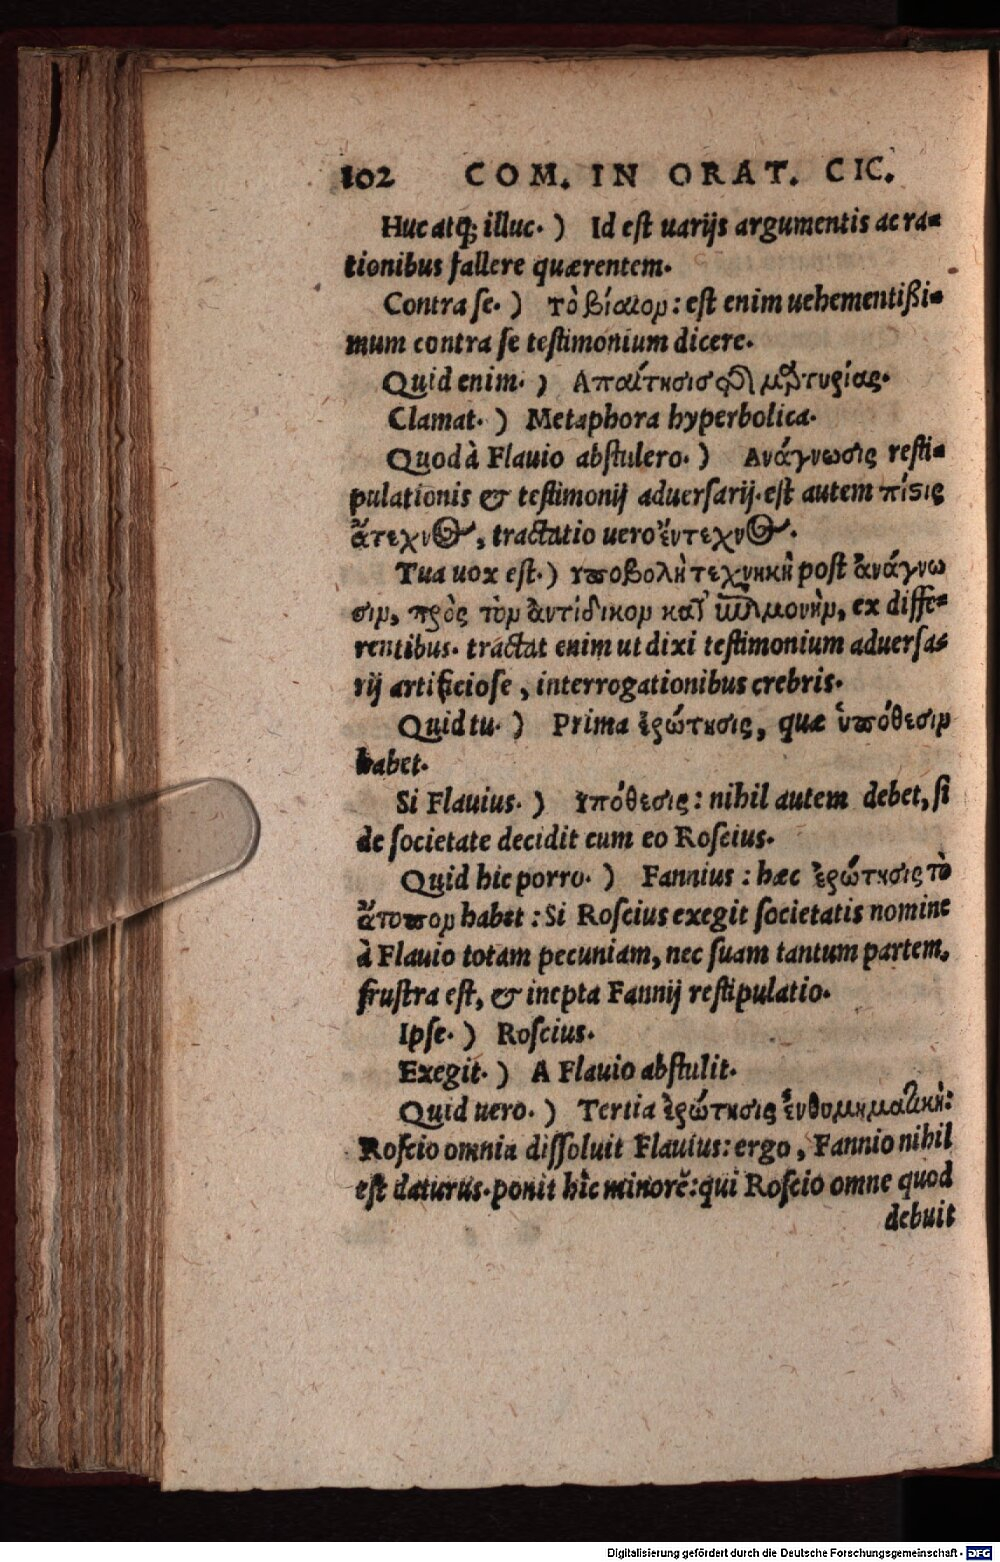 102 COM. IN ORAT. CIC.
Huc atq; illuc. ) Id est uarijs argumentis ac ra-
tionibus fallere quærentem.
Contra se. ) τὸ βίαιον : est enim uehementißi-
mum contra se testimonium dicere.
Quid enim. ) Απαίτησις μαρτυρίας.
Clamat. ) Metaphora hyperbolica.
Quod à Flauio abstulero. ) Ανάγνωσις resti-
pulationis & testimonij aduersarij. est autem πίστις
ἄτεχνος, tractatio uero ἔντεχνος.
Tua uox est. ) Υποβολὴ τεχνηκὴ post ἀνάγνω
σιν, πρὸς τὸν ἀντίδικον κατ' ἐπιμονὴν, ex diffe-
rentibus. tractat enim ut dixi testimonium aduersa-
rij artificiose, interrogationibus crebris.
Quid tu. ) Prima ἐρώτησις, quæ ὑπόθεσιν
habet.
Si Flauius. ) Υπόθεσις : nihil autem debet, si
de societate decidit cum eo Roscius.
Quid hic porro. ) Fannius : hæc ἐρώτησις τὸ
ἄτοπον habet : Si Roscius exegit societatis nomine
à Flauio totam pecuniam, nec suam tantum partem,
frustra est, & inepta Fannij restipulatio.
Ipse. ) Roscius.
Exegit. ) A Flauio abstulit.
Quid uero. ) Tertia ἐρώτησις ἐνθυμηματικὴ:
Roscio omnia dissoluit Flauius: ergo, Fannio nihil
est daturus. ponit hîc minorẽ: qui Roscio omne quod
debuit
Digitalisierung gefördert durch die Deutsche Forschungsgemeinschaft - DFG